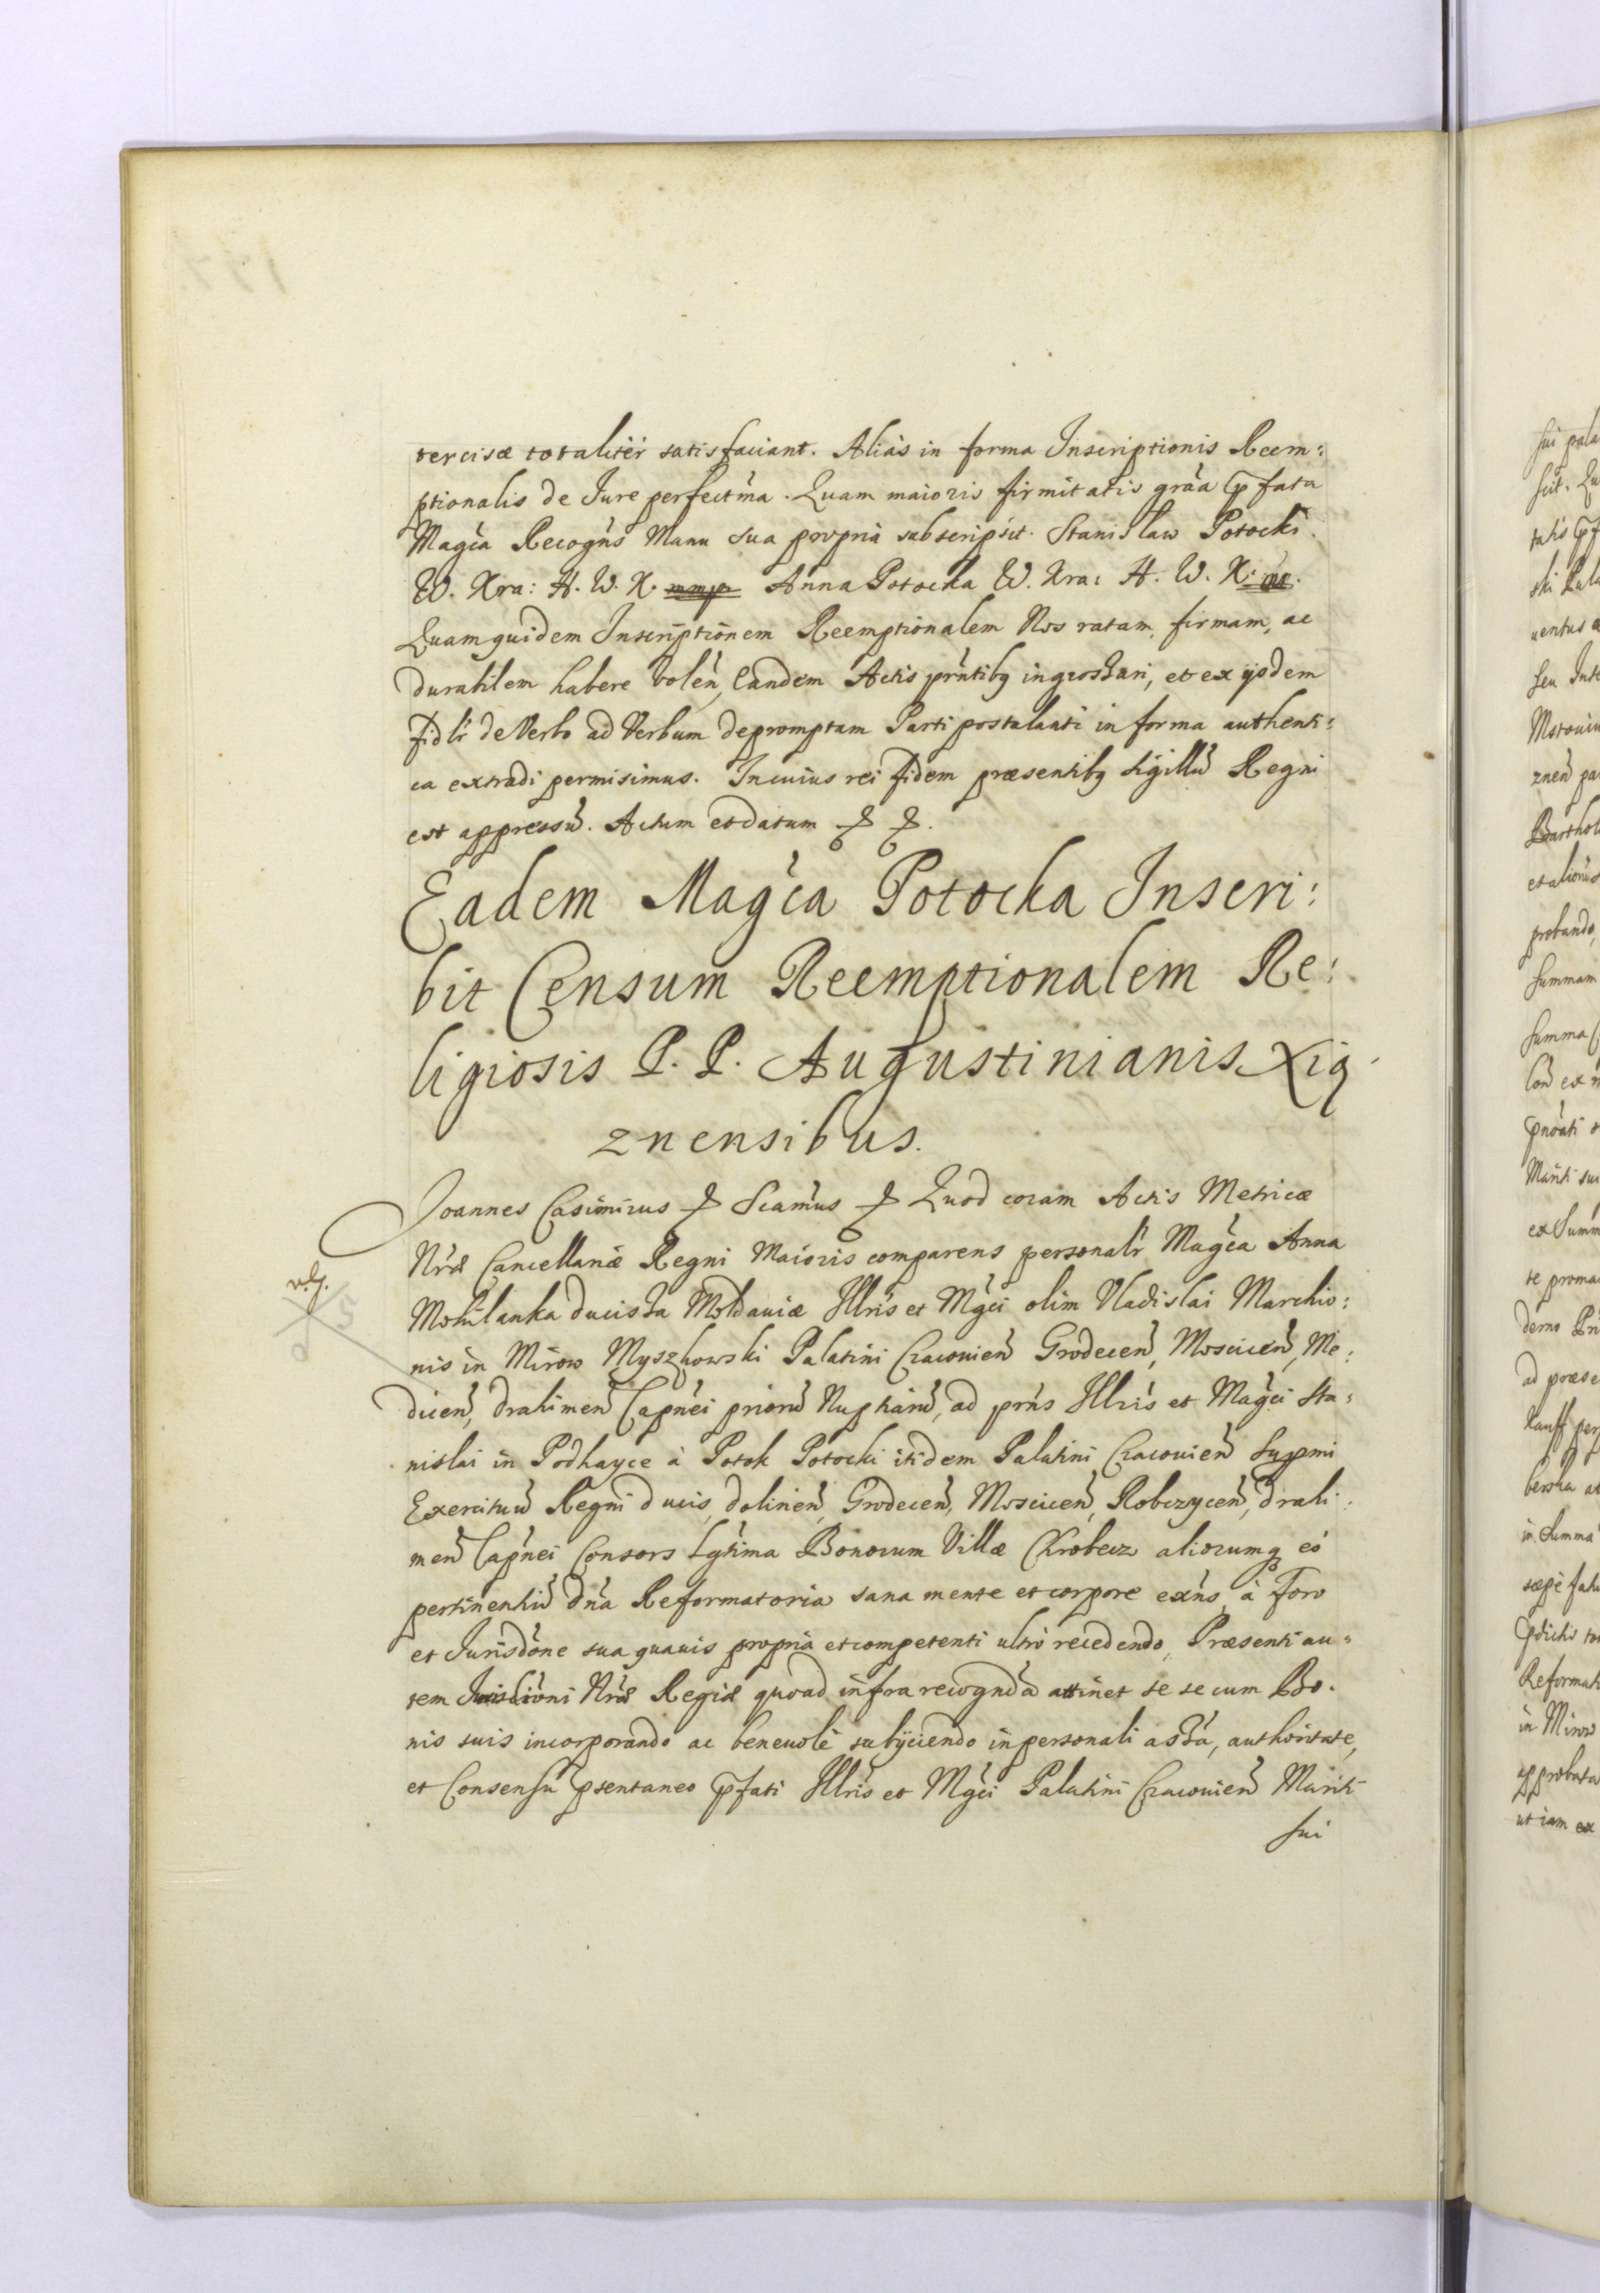 tercisæ totalitèr satisfaciant. Aliàs in forma Inscriptionis Reem:
ptionalis de Iure perfectma. Quam maioris firmitatis grãa pfata
Magca Recogns Manu sua propria subscripsit. Stanisław Potocki
W. Kra: H. W. K. mmp Anna Potocka W. Kra: H. W. K.
Quamquidem Inscriptionem Reemptionalem Nos ratam, firmam, ac
durabilem habere volen, Eandem Actis prntibq ingrossari, et ex ijsdem
fidlr de Verbo ad Verbum depromptam Parti postulanti in forma authenti:
ca extradi permisimus. In cuius rei fidem præsentibq sigillu Regni
est appressu. Actum et datum &. &.
Eadem Magca Potocka Inscri:
bit Censum Reemptionalem Re:
ligiosis P. P. Augustinianis Xią
znensibus.
Joannes Casimirus &. Scamus &. Quod coram Actis Metricæ
Nræ Cancellariæ Regni Maioris comparens personalr Magca Anna
Mohilanka ducissa Moldauiæ Illris et Mgci olim Vladislai Marchio:
nis in Mirow Myszkowski Palatini Cracouien Grodecen, Moscicen, Me:
dicen, Drahimen Capnei prioru Nuptiaru, ad prns Illris et Magci Sta:
nislai in Podhayce à Potok Potocki itidem Palatini Cracouien Supmi
Exercituu Regni ducis, dolinen, Grodecen, Moscicen, Robczycen, Drahi:
men Capnei Consors Lgtima Bonorum Villæ Chrobecz aliorumq eó
pertinentiu dna Reformatoria sana mente et corpore exns, à Foro
et Jurisdone sua quauis propria et competenti ultró recedendo, Præsenti au:
tem Nræ Regiæ quoad infra recognda attinet se se cum Bo:
nis suis incorporando ac beneuolè subijciendo in personali assa, authoritate,
et Consensu psentaneo pfati Illris et Mgci Palatini Cracouien Mariti
sui